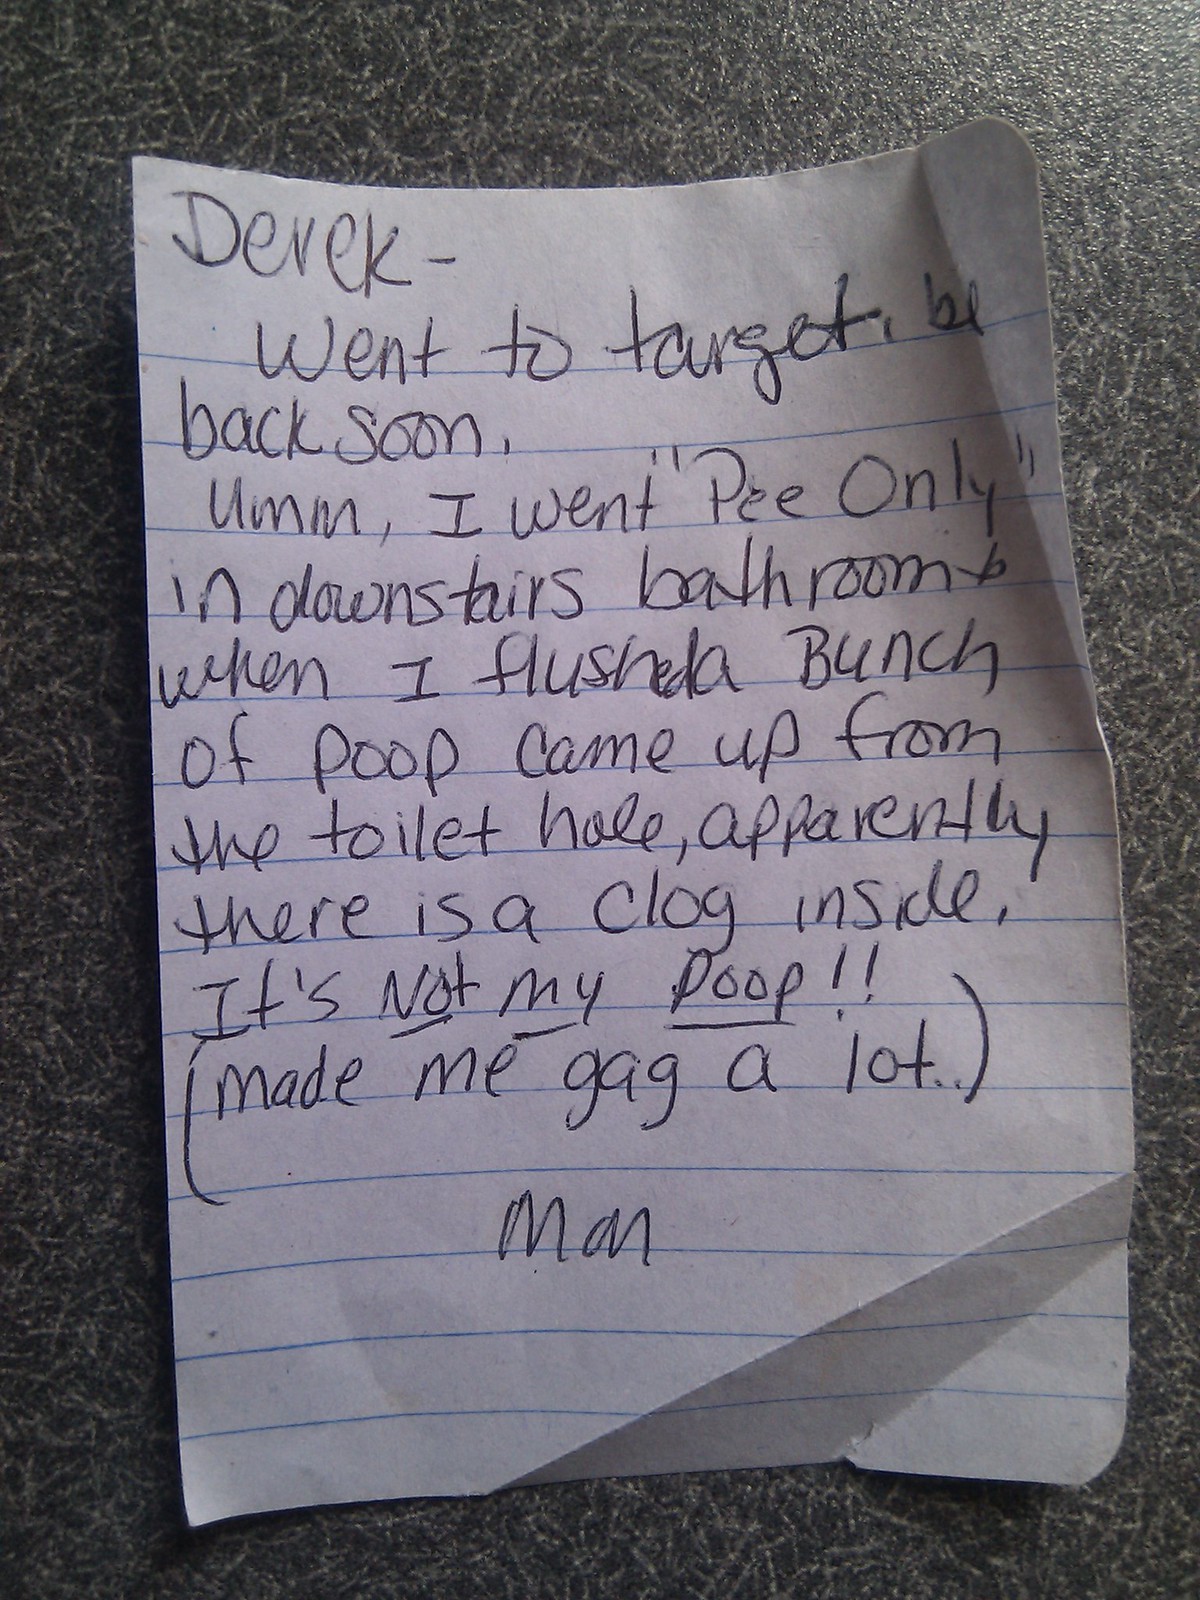 Derek -
Went to target. be
back soon.
Umm, I went "Pee Only"
in downstairs bathroom &
when I flushed a Bunch
of poop came up from
the toilet hole, apparently
there is a clog inside.
It's Not my Poop!!
(made me gag a lot..)
Mom